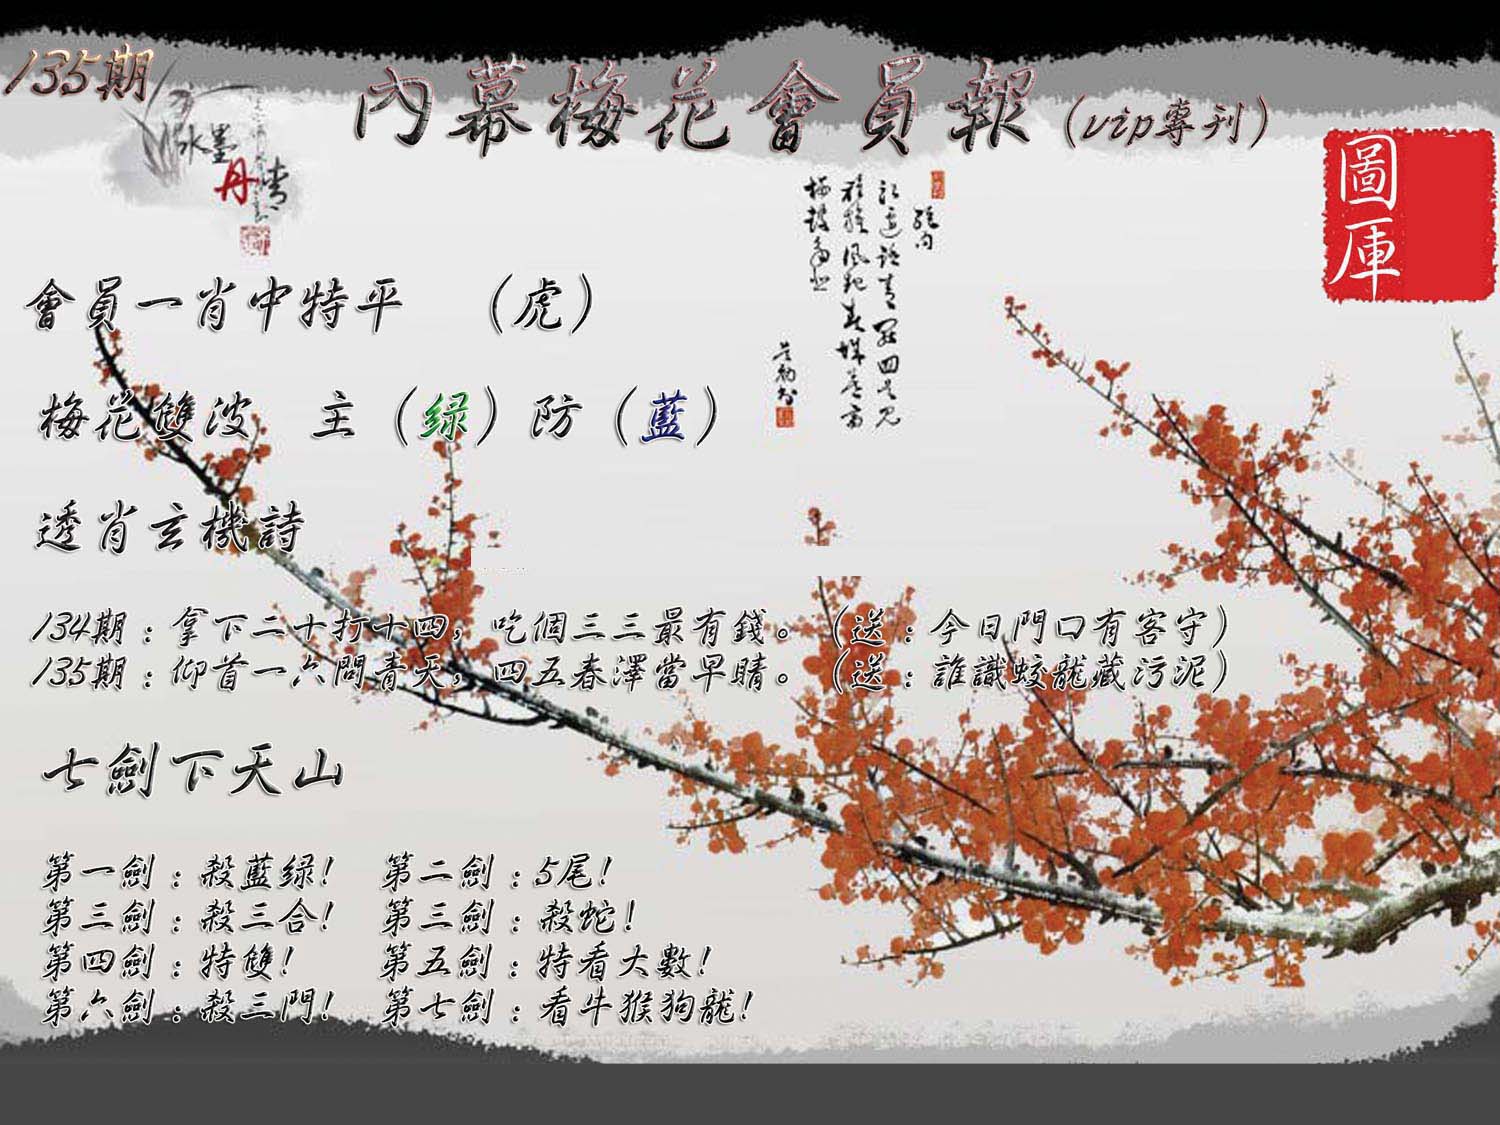 135期
內幕梅花會員報（vip專刊）
水墨
丹青
圖庫
會員一肖中特平　（虎）
梅花雙波　主（绿）防（藍）
透肖玄機詩
134期：拿下二十打十四，吃個三三最有錢。（送：今日門口有客守）
135期：仰首一六問青天，四五春澤當早睛。（送：誰識蛟龍藏污泥）
七劍下天山
第一劍：殺藍绿！　第二劍：5尾！
第三劍：殺三合！　第三劍：殺蛇！
第四劍：特雙！　第五劍：特看大數！
第六劍：殺三門！　第七劍：看牛猴狗龍！